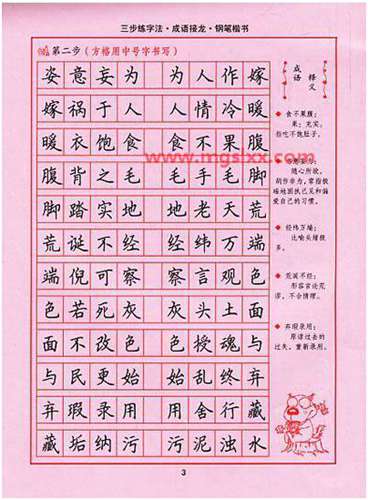 三步练字法·成语接龙·钢笔楷书
第二步（方格用中号字书写）
姿意妄为 为人作嫁
嫁祸于人 人情冷暖
暖衣饱食 食不果腹
腹背之毛 毛手毛脚
脚踏实地 地老天荒
荒诞不经 经纬万端
端倪可察 察言观色
色若死灰 灰头土面
面不改色 色授魂与
与民更始 始乱终弃
弃瑕录用 用舍行藏
藏垢纳污 污泥浊水
成语释义
食不果腹：
果：充实。
指吃不饱肚子。
随心所欲，
胡作非为。常指教
己的习惯。
经纬万端：
比喻头绪很
多。
荒诞不经：
形容言论荒
谬，不合情理。
弃瑕录用：
原谅过去的
过失，重新录用。
www.mgslxx.com
3